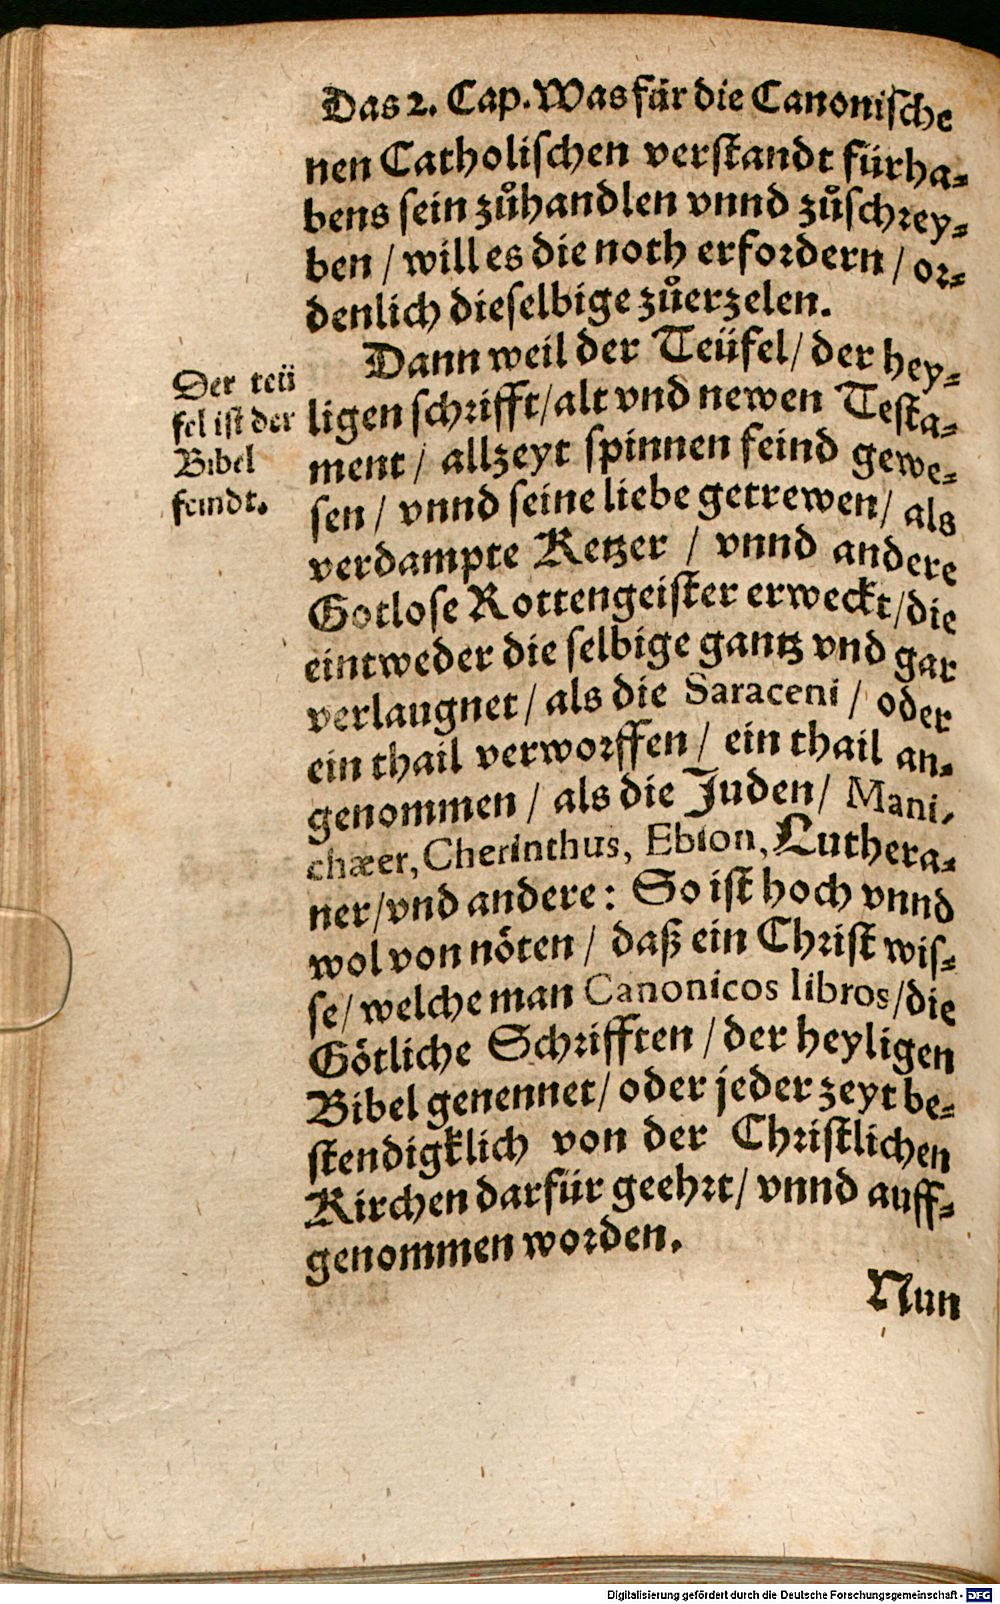 Das 2. Cap. Was für die Canonische
nen Catholischen verstandt fürha⸗
bens sein zůhandlen vnnd zůschrey⸗
ben / will es die noth erfordern / or⸗
denlich dieselbige zůerzelen.
Dann weil der Teüfel / der hey⸗
ligen schrifft / alt vnd newen Testa⸗
ment / allzeyt spinnen feind gewe⸗
sen / vnnd seine liebe getrewen / als
verdampte Ketzer / vnnd andere
Gotlose Rottengeister erweckt / die
eintweder die selbige gantz vnd gar
verlaugnet / als die Saraceni / oder
ein thail verworffen / ein thail an⸗
genommen / als die Juden / Mani-
chæer, Cherinthus, Ebion, Luthera⸗
ner / vnd andere: So ist hoch vnnd
wol von nöten / daß ein Christ wis⸗
se / welche man Canonicos libros / die
Götliche Schrifften / der heyligen
Bibel genennet / oder jeder zeyt be⸗
stendigklich von der Christlichen
Kirchen darfür geehrt / vnnd auff⸗
genommen worden.
Nun
Der teü
fel ist der
Bibel
feindt.
Digitalisierung gefördert durch die Deutsche Forschungsgemeinschaft - DFG